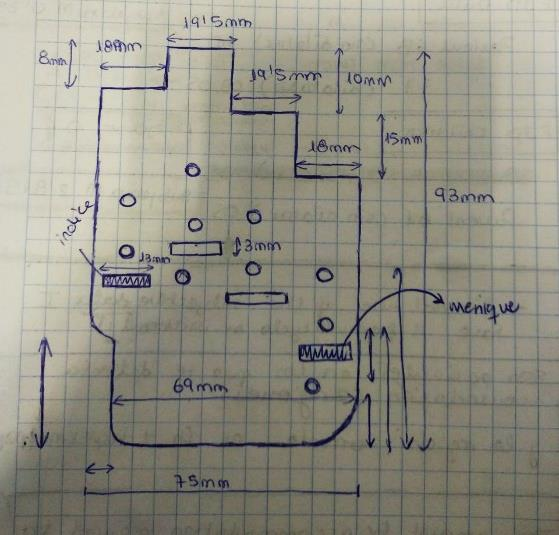 19'5mm
18mm
8mm
19'5mm
10mm
18mm
15mm
93mm
indice
13mm
3mm
menique
69mm
75mm